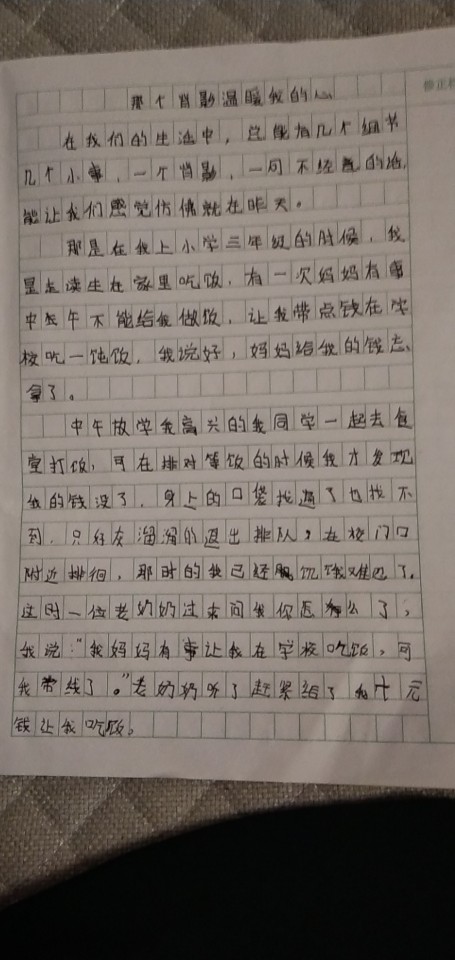 那个背影温暖我的心
在我们的生活中，总能有几个细节
几个小事，一个背影，一句不经意的话，
能让我们感觉仿佛就在昨天。
那是在我上小学三年级的时候，我
是走读生在家里吃饭，有一次妈妈有事
中午不能给我做饭，让我带点钱在学
校吃一饨饭，我说好，妈妈给我的钱忘
拿了。
中午放学我高兴的我同学一起去食
堂打饭，可在排对等饭的时候我才发现
我的钱没了，身上的口袋找遍了也找不
到，只好灰溜溜的退出排队，在校门口
附近排徊，那时的我已经饥饿难忍了，
这时一位老奶奶过来问我你怎么了，
我说："我妈妈有事让我在学校吃饭，可
我带钱了。"老奶奶听了赶紧给了我十元
钱让我吃饭。